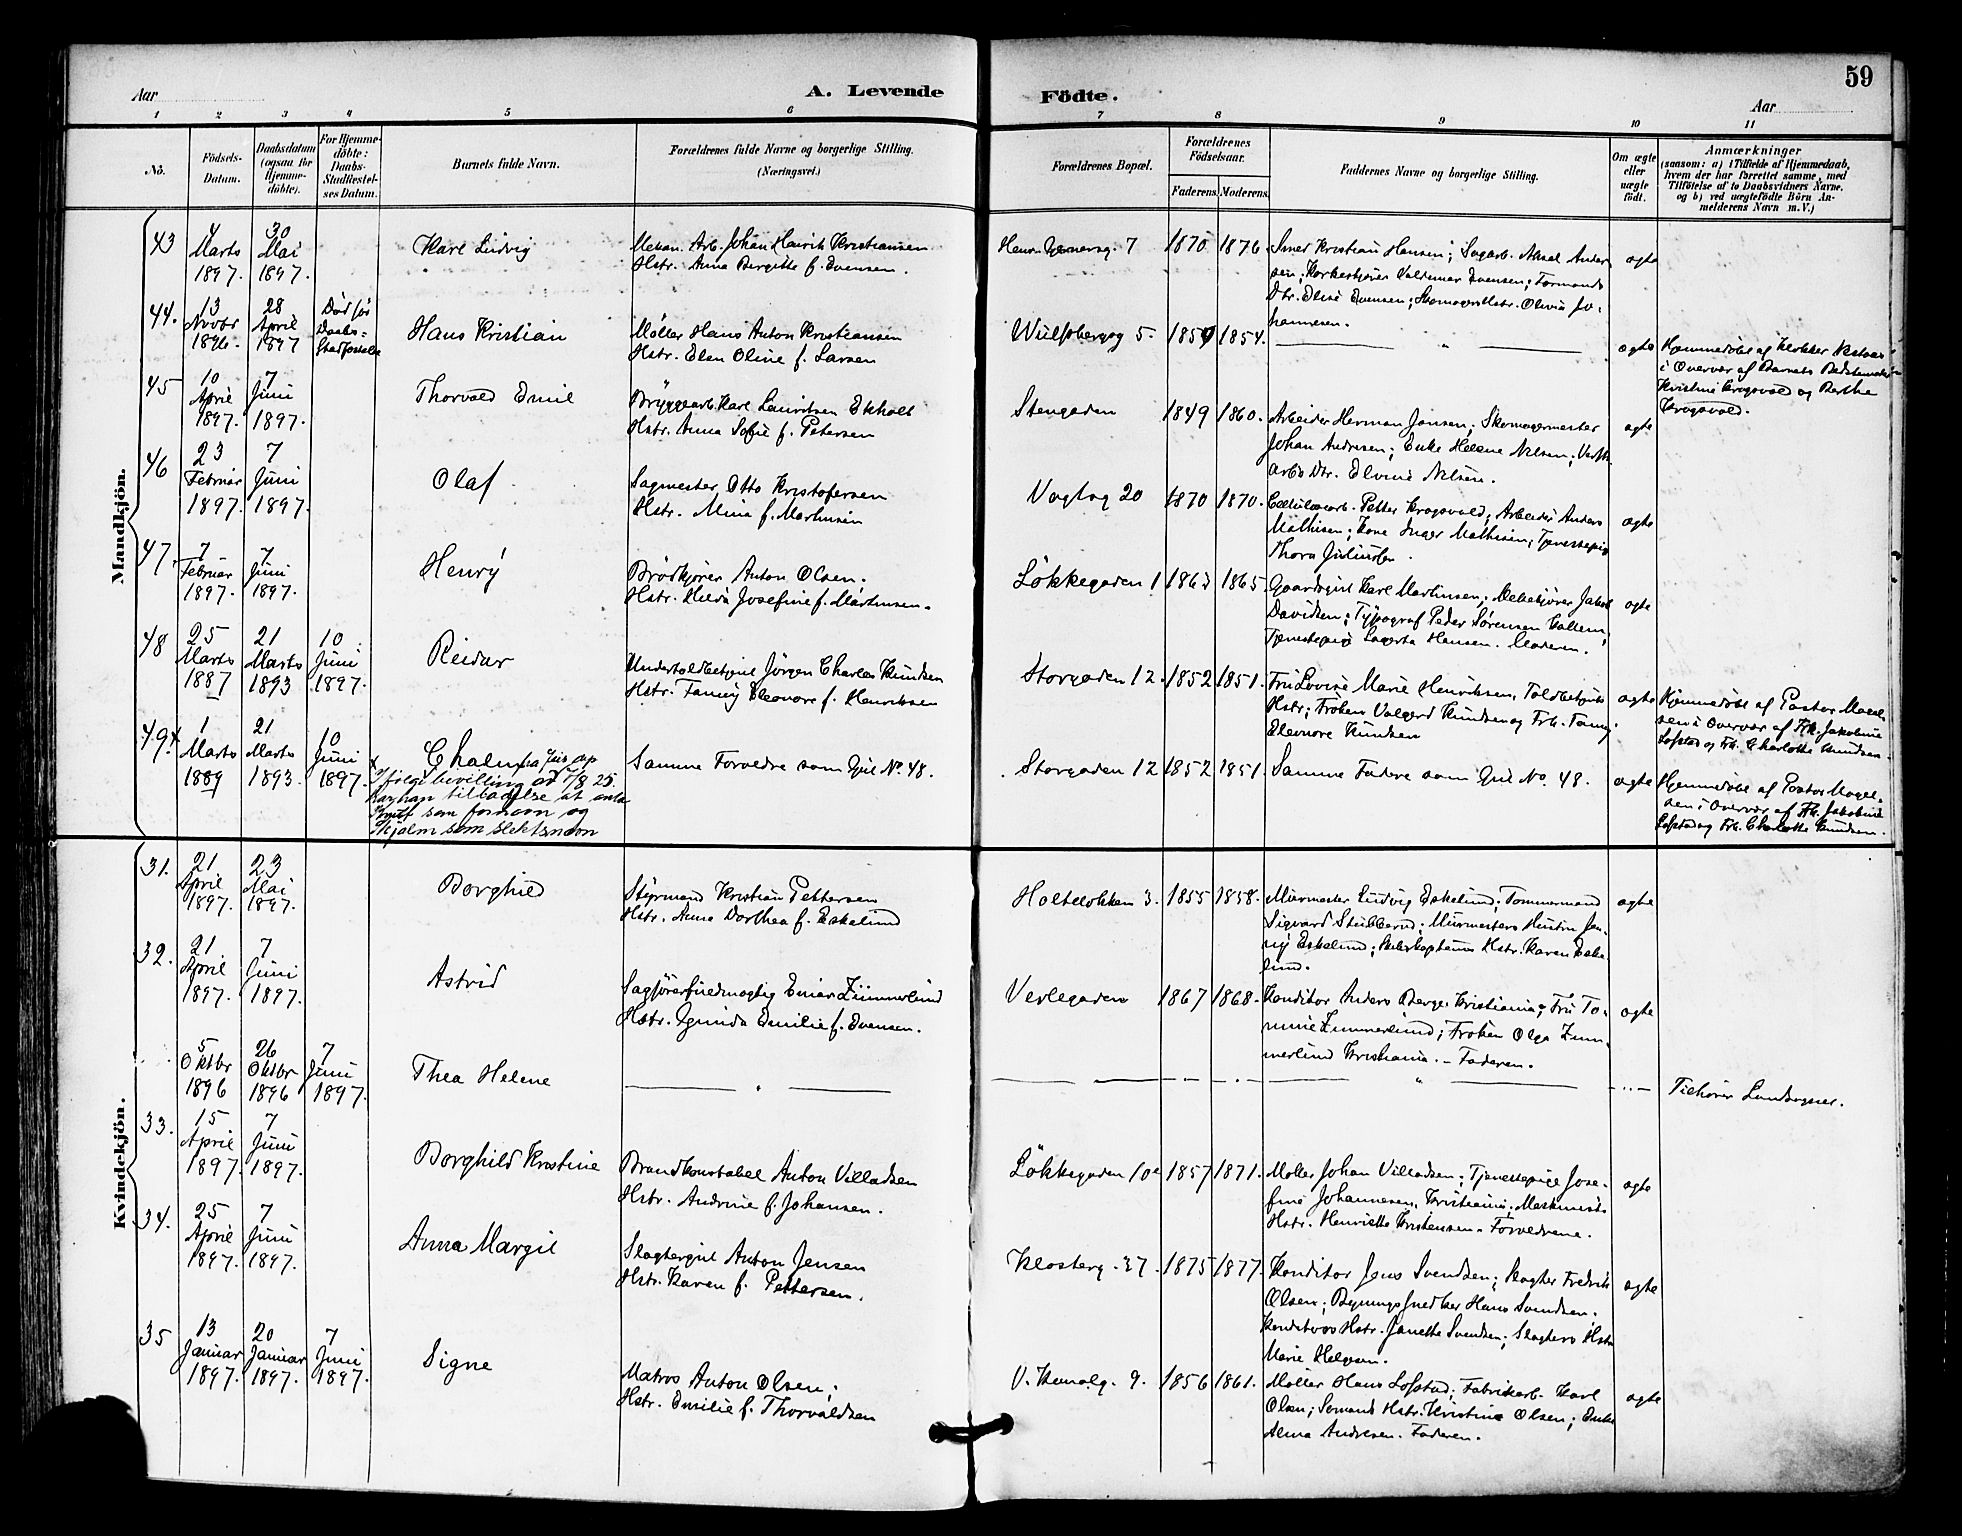 59
Aar
A. Levende
Födte.
Aar
1 2 3 4 5 6 7 8 9 10 11
No.
Födsels-
Datum.
Daabsdatum
(ogsaa for
Hjemme-
döbte).
For Hjemme-
döbte:
Daabs-
Stadfestel-
ses Datum.
Barnets fulde Navn.
Forældrenes fulde Navne og borgerlige Stilling.
(Næringsvei.)
Forældrenes Bopæl.
Forældrenes
Födselsaar.
Faderens. Moderens.
Faddernes Navne og borgerlige Stilling.
Om ægte
eller
uægte
födt.
Anmærkninger
(saasom: a) i Tilfælde af Hjemmedaab,
hvem der har forrettet samme, med
Tilföielse af to Daabsvidners Navne.
og b) ved uægtefödte Börn An-
melderens Navn m. V.)
Mandkjön.
43
4
Marts
1897.
30
Mai
1897.
Karl Ludvig
Mekan. Arb. Johan Henrik Kristiansen
Hstr. Anna Bergitte f. Evensen.
7
1870 1876
Kristian Hansen; Sagarb. Aksel Ander-
sen; Valdemar Evensen; Formands
Dtr. Elise Evensen; Skomagers Hstr. Olivia Jo-
hannesen.
ægte
44.
13
Novbr
1896.
28
April
1897
Död før
Daabs-
Stadfestelse
Hans Kristian
Møller Hans Anton Kristiansen
Hstr. Elen Oline f. Larsen
Wulfsbergsg 5.
1859 1854.
— " —
ægte
Hjemmedøbt af Klokker
i Overvær af Barnets Bedstemoder
Kristine Krogsvold og Berthe
Krogsvold.
45
10
April
1897.
7
Juni
1897.
Thorvald Emil
Bryggearb. Karl Lauritsen Ekholt
Hstr. Anna Sofie f. Petersen
Stengaden
1849 1860.
Arbeider Herman Jansen; Skomagermester
Johan Andresen; Enke Helene Nilsen; Værft-
arbs Dtr. Elvine Nilsen.
ægte
46
23
Februar
1897.
7
Juni
1897.
Olaf
Sagmester Otto Kristofersen
Hstr. Mina f. Martinsen
Vogtsg 20
1870 1870.
Cellulosearb. Petter Krogsvold; Arbeider Anders
Mathisen; Kone Inger Mathisen; Tjenestepig
Thora
ægte
47.
7
Februar
1897.
7
Juni
1897.
Henry
Brødkjører Anton Olsen.
Hstr. Hilda Josefine f. Martinsen.
Løkkegaden 1
1863 1865
Gaardsgut Karl Martinsen; Melkekjører Jakob
Davidsen; Typograf Peder Sørensen
Tjenestepige Hansen. Moderen.
ægte
48
25
Marts
1887
21
Marts
1893
10
Juni
1897.
Reidar
Undertoldbetjent Jørgen Charles Knudsen
Hstr. Fanny Eleonore f. Henriksen
Storgaden 12.
1852 1851.
Fru Lovise Marie Henriksen, Toldbetjents
Hstr; Frøken Valgerd Knudsen og Frk. Fanny
Eleonore Knudsen
ægte
Hjemmedøbt af Pastor
i Overvær af Frk. Jakobine
Lofstad og Frk. Charlotte Knudsen.
49. x
1
Marts
1889
21
Marts
1893.
10
Juni
1897.
Chalm
Ifølge bevilling
25.
har han tilladelse at anta
Knut som fornavn og
Hjalm som slektsnavn
Samme Forældre som Gut No. 48.
Storgaden 12
1852 1851.
Samme Faddere som Gut No. 48.
ægte
Hjemmedøbt af Pastor
i Overvær af Frk. Jakobine
Lofstad og Frk. Charlotte Knudsen.
Kvindekjön.
31.
21
April
1897.
23
Mai
1897.
Borghild
Styrmand Kristian Pettersen
Hstr. Anna Dorthea f. Eskelund
Holteløkken 3.
1855 1858.
Murmester Ludvig Eskelund; Tømmermand
Sigvard Stubberud; Murmesters Hustru Jen-
ny Eskelund; Skibskaptains Hstr. Karen Eske-
lund.
ægte
32.
21
April
1897.
7
Juni
1897.
Astrid
Sagførerfuldmægtig Einar Zimmerlund
Hstr. Gunda Emilie f. Evensen.
Verlegaden
1867 1868.
Konditor Anders Berge, Kristiania; Fru To-
mine Zimmerlund; Frøken Olga Zim-
merlund Kristiania. – Faderen.
ægte
5
Oktbr
1896
26
Oktbr
1896
7
Juni
1897.
Thea Helene
— " —
Tilhører Landsognet.
33.
15
April
1897.
7
Juni
1897.
Borghild Kristine
Brandkonstabel Anton Villadsen
Hstr. Andrine f. Johansen.
Løkkegaden 10
1857 1871.
Møller Johan Villadsen; Tjenestepige Jose-
fine Johannesen, Kristiania; Maskinists
Hstr. Henriette Kristensen. Forældrene.
ægte
34.
25
April
1897.
7
Juni
1897.
Anna Margit
Slagtergut Anton Jensen
Hstr. Karen f. Pettersen.
Klosterg. 37.
1875 1877.
Konditor Jens Svendsen; Slagter Fredrik
Olsen; Bygningssnedker Hans Svendsen.
Konditors Hstr. Janette Svendsen; Slagters Hstr
Marie Helgesen.
ægte
35
13
Januar
1897.
20
Januar
1897.
7
Juni
1897.
Signe
Matros Anton Olsen;
Hstr. Emilie f. Thorvaldsen
9.
1856 1861.
Møller Hans Lofstad; Fabrikarb. Karl
Olsen; Sømands Hstr. Kristine Olsen; Enke
Alma Andresen. Faderen.
ægte